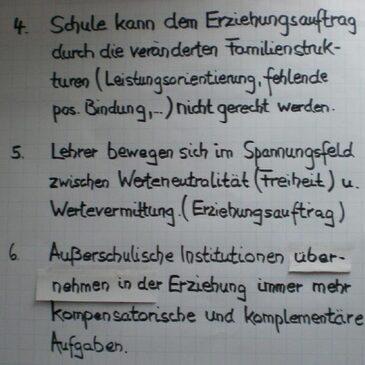 4. Schule kann dem Erziehungsauftrag
durch die veränderten Familienstruk-
turen (Leistungsorientierung, fehlende
pos. Bindung,...) nicht gerecht werden.
5. Lehrer bewegen sich im Spannungsfeld
zwischen Werteneutralität (Freiheit) u.
Wertevermittlung. (Erziehungsauftrag)
6 Außerschulische Institutionen über-
nehmen in der Erziehung immer mehr
kompensatorische und komplementäre
Aufgaben.